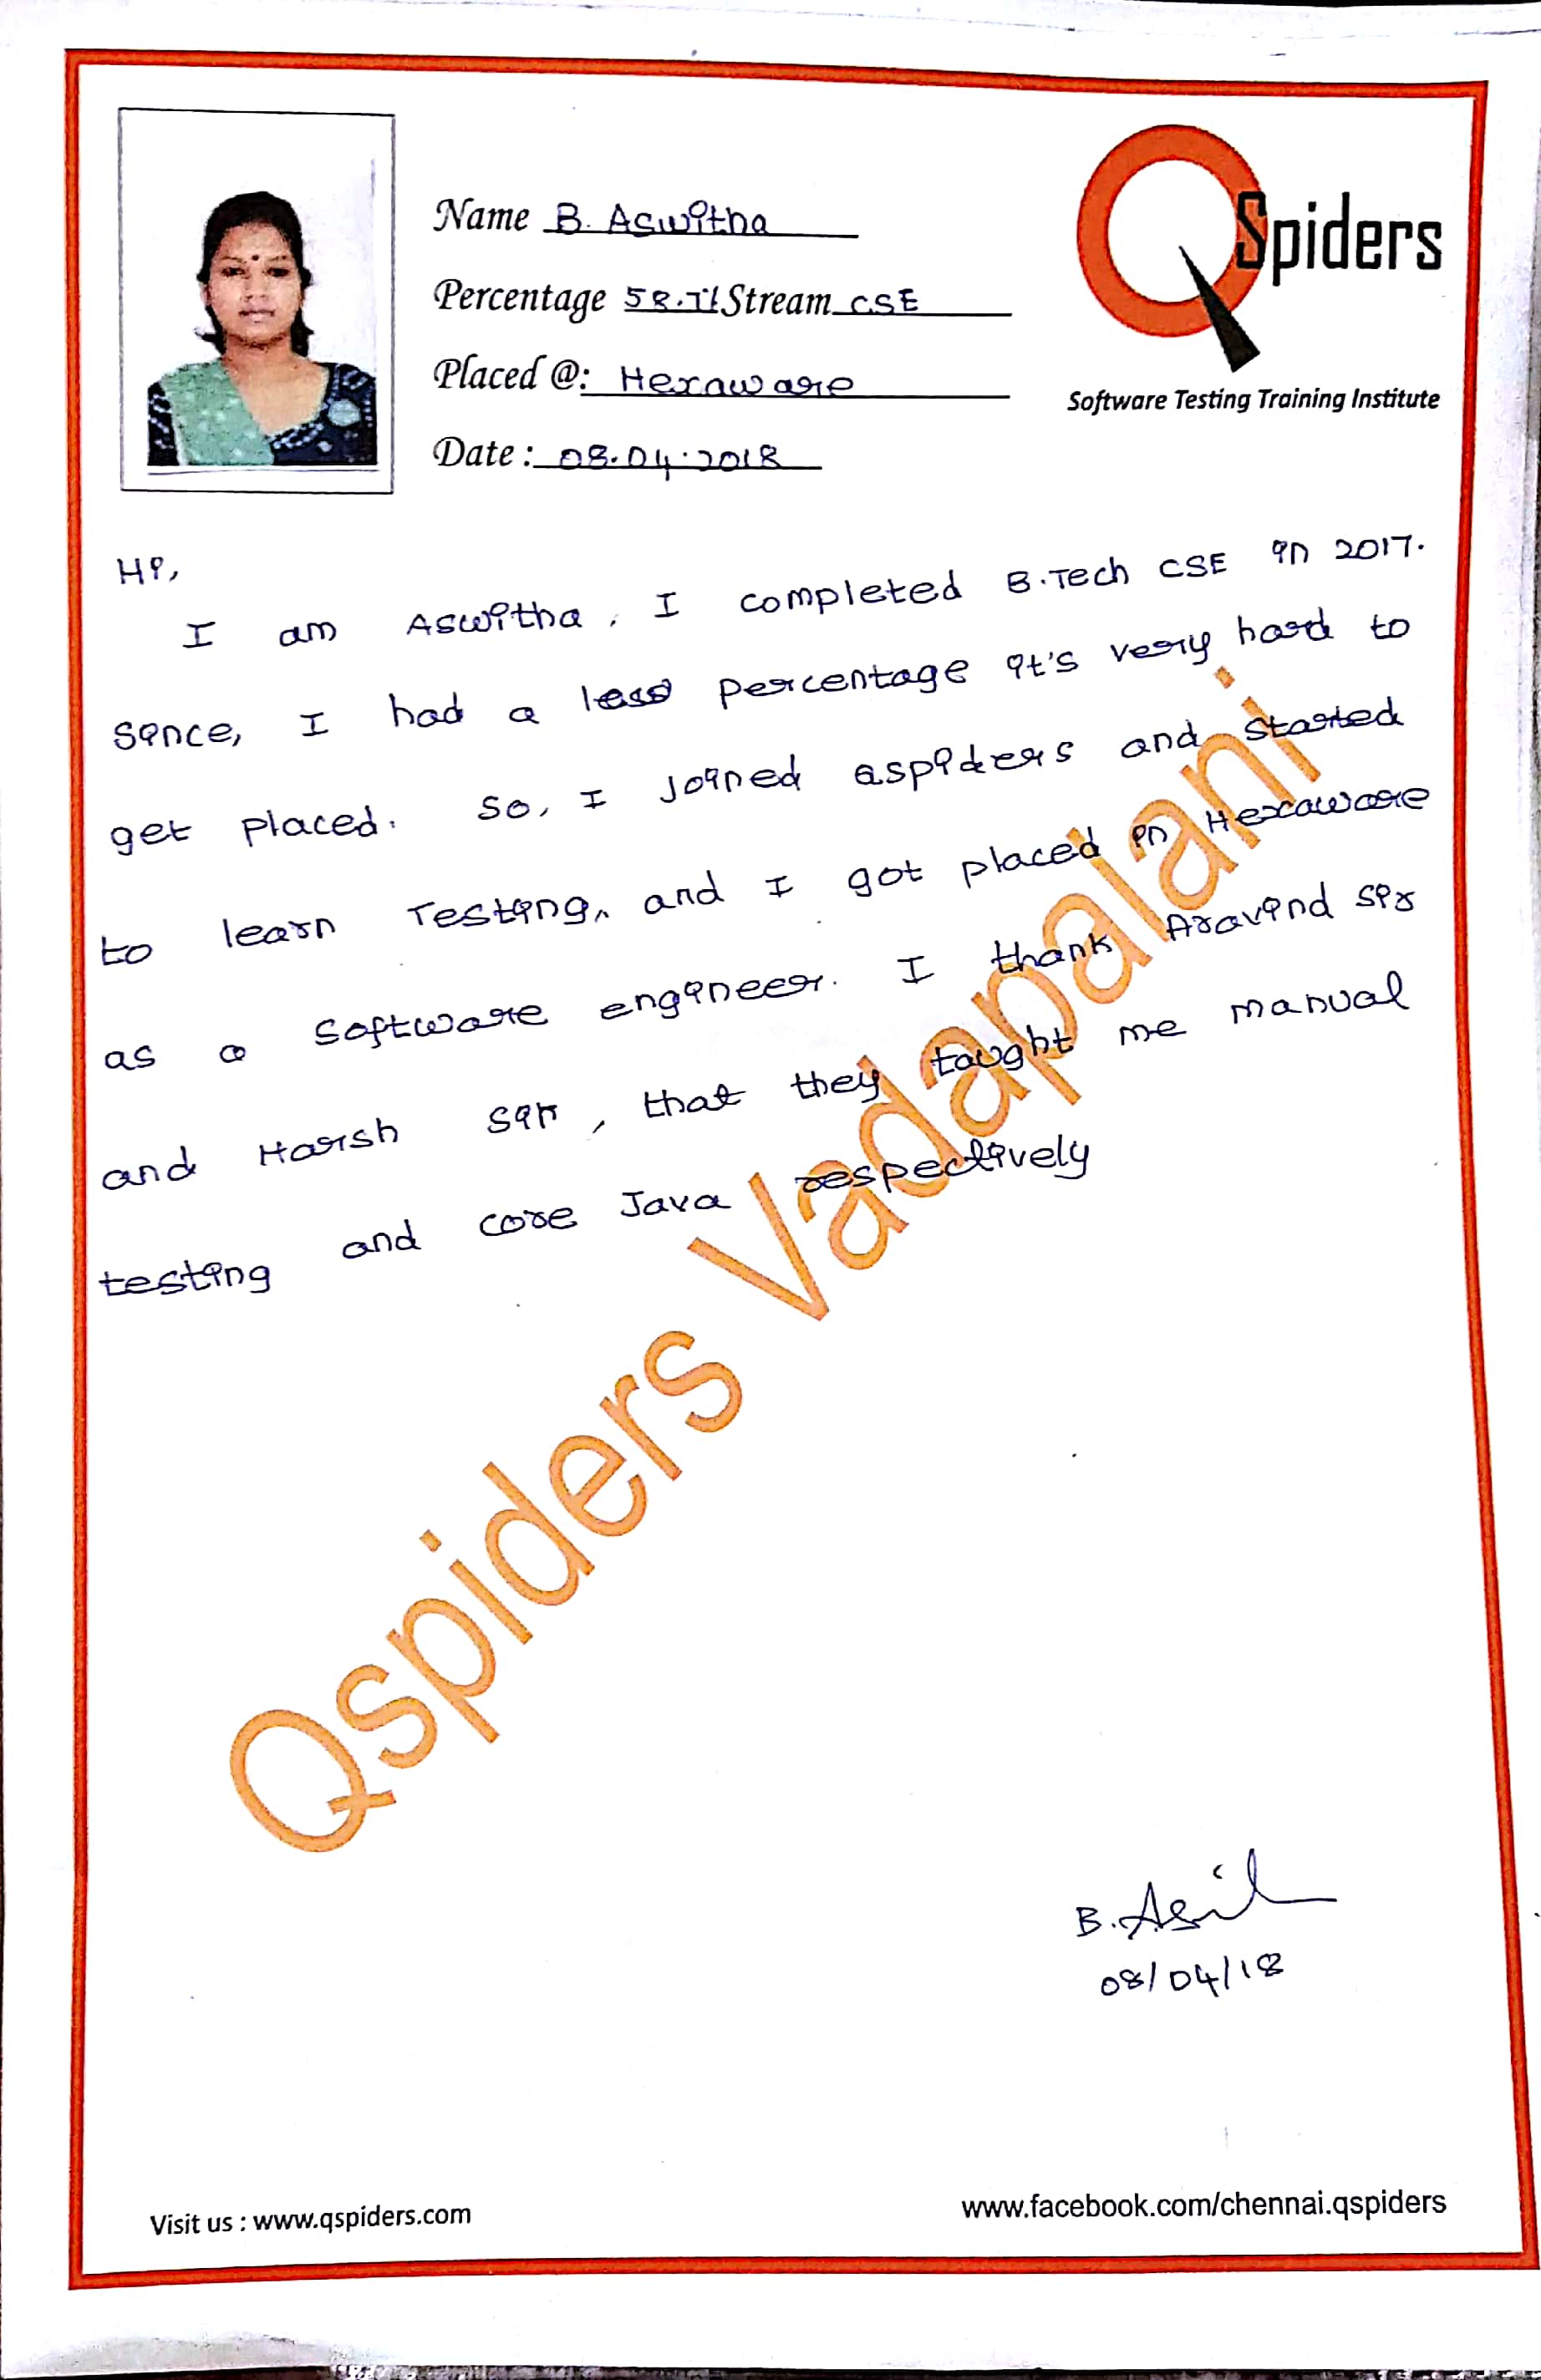 Name B. Aswitha
Percentage Stream CSE
Placed @: Hexaware
Date : 08.04.2018
QSpiders
Software Testing Training Institute
Hi,
I am Aswitha, I completed B.Tech CSE in 2017.
Since, I had a less percentage it's very hard to
get placed. So, I joined qspiders and started
to learn Testing, and I got placed in Hexaware
as a Software engineer. I thank Aravind sir
and Harish sir, that they taught me manual
testing and core Java respectively
Qspiders Vadapalani
08/04/18
Visit us : www.qspiders.com
www.facebook.com/chennai.qspiders